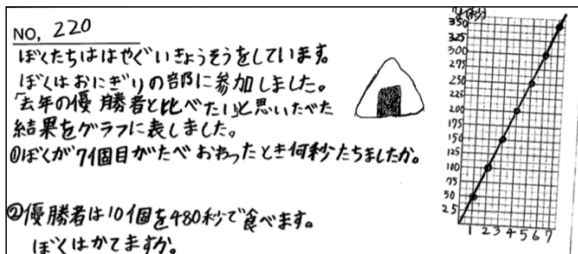 NO, 220
ぼくたちははやぐいきょうそうをしています。
ぼくはおにぎりの部に参加しました。
「去年の優勝者と比べたい」と思いたべた
結果をグラフに表しました。
①ぼくが7個目がたべおわったとき何秒たちましたか。
②優勝者は10個を480秒で食べます。
ぼくはかてますか。
350
325
300
275
250
225
200
175
150
125
100
75
50
25
1 2 3 4 5 6 7